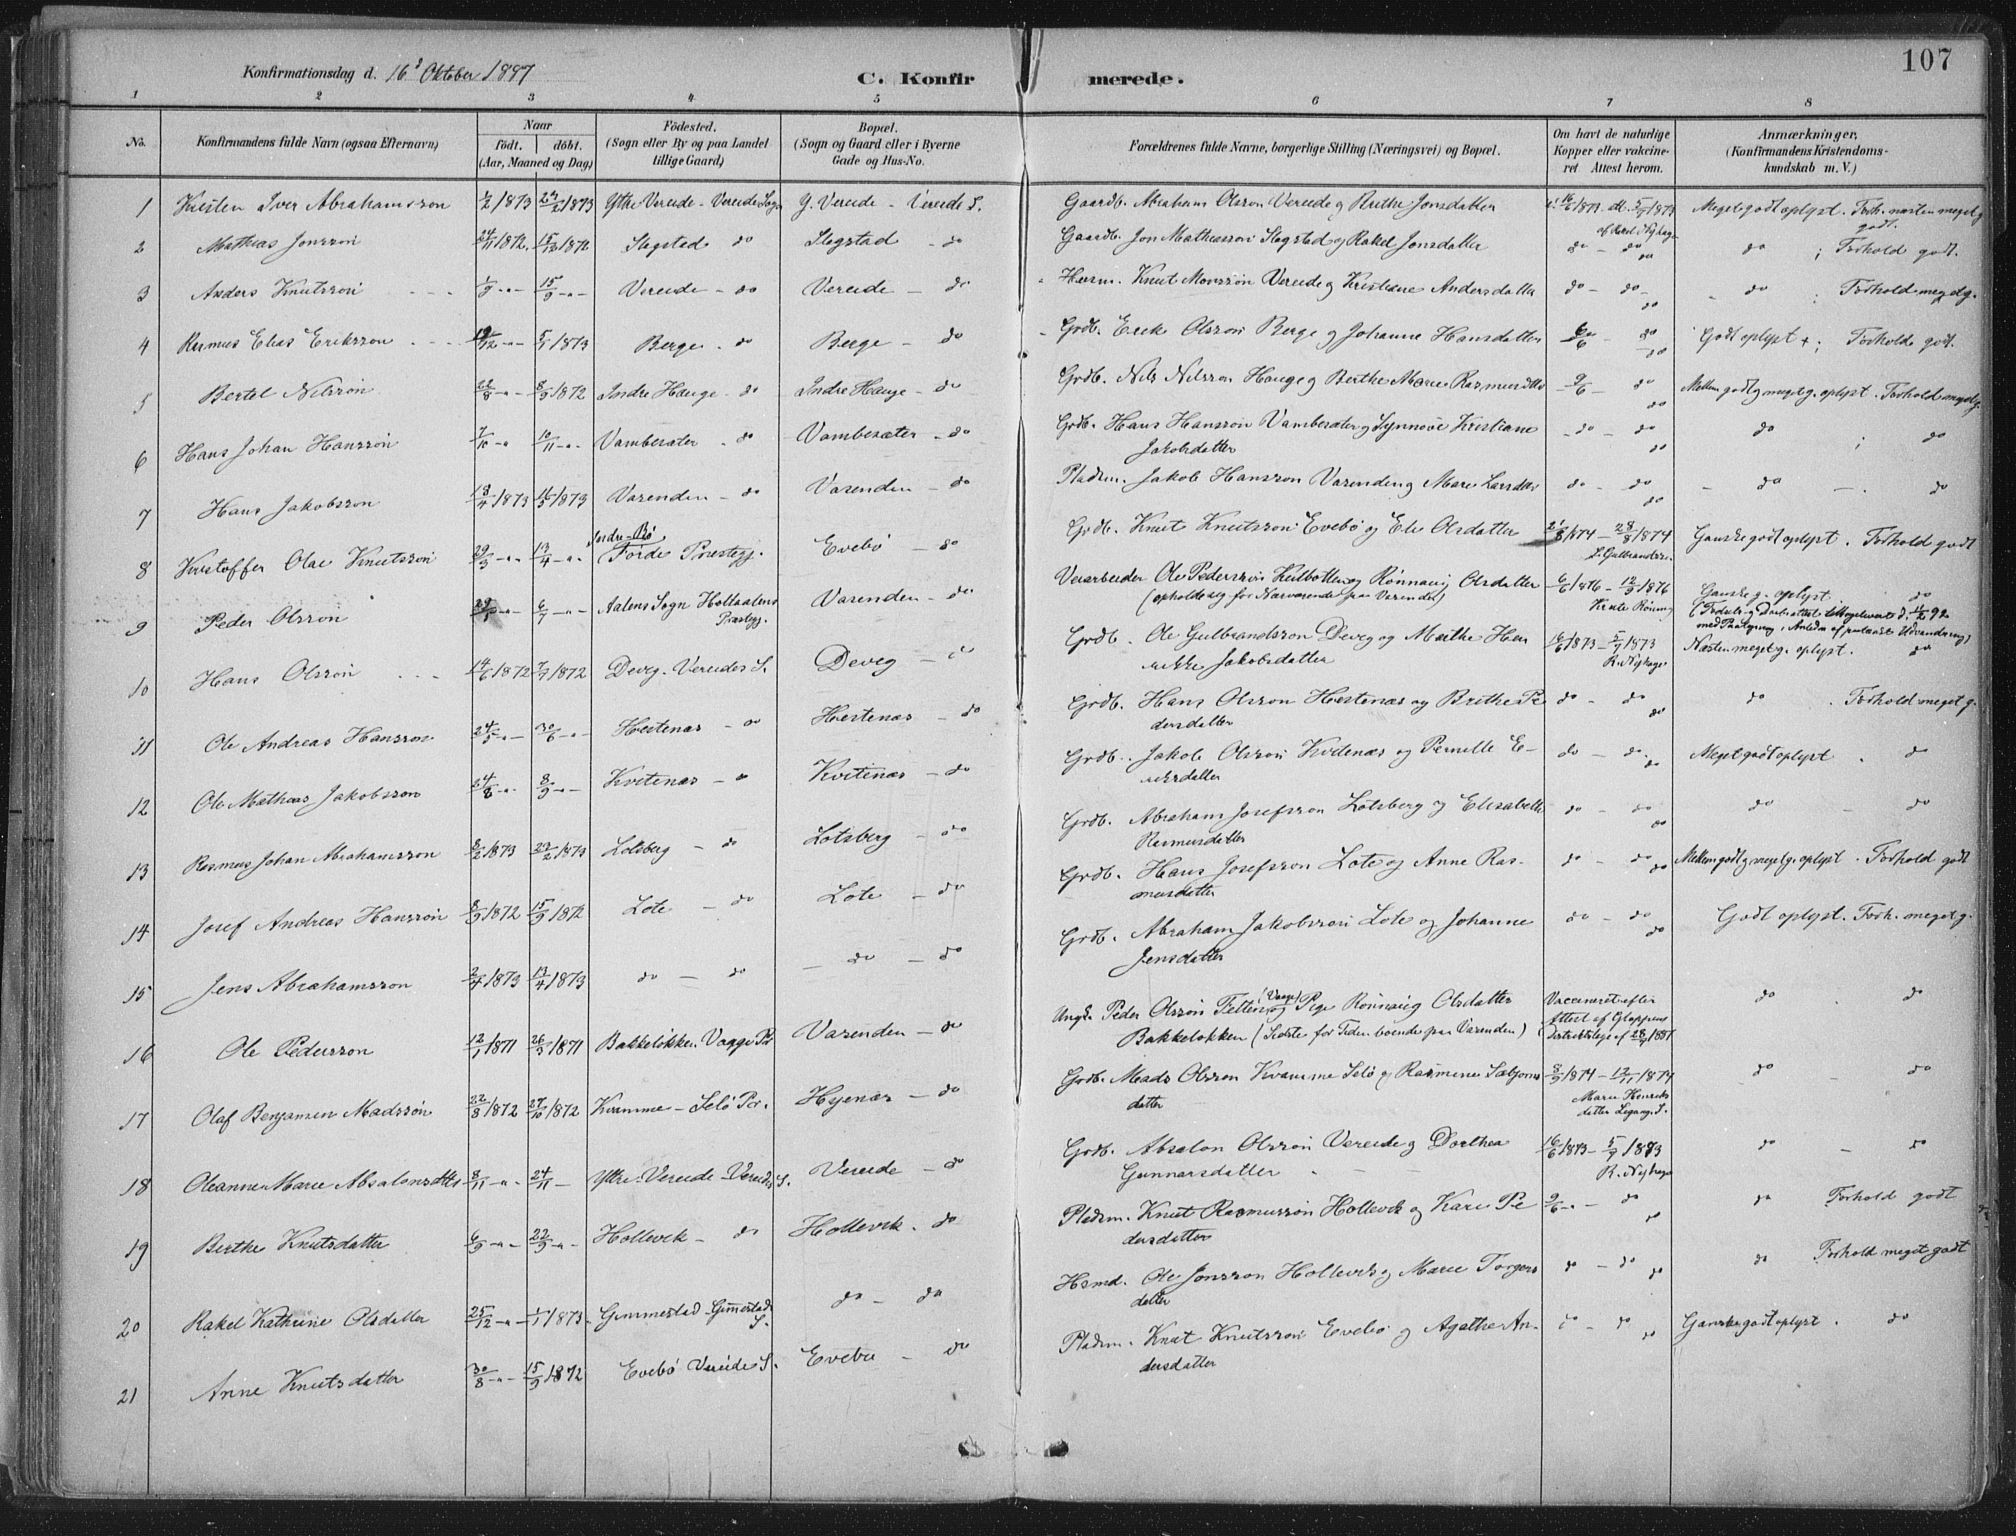 107
Konfirmationsdag d. 16' Oktober 1887
C. Konfirmerede.
1 2 3 4 5 6 7 8
No. Konfirmandens fulde Navn (ogsaa Efternavn) Naar födt. döbt. (Aar, Maaned og Dag) Födested. (Sogn eller By og paa Landet tillige Gaard) Bopæl. (Sogn og Gaard eller i Byerne Gade og Hus-No. Forældrenes fulde Navne, borgerlige Stilling (Næringsvei) og Bopæl. Om havt de naturlige Kopper eller vaccineret Attest herom. Anmærkninger, (Konfirmandens Kristendomskundskab m. V.)
1 Kristen Iver Abrahamssön 1/2 1873 24/2 1873 Ytre Vereide - Vereide Sogn Y. Vereide - Vereide S. Gaardb. Abraham Olssön Vereide og Brithe Jonsdatter 16/6 1873 - at. 5/7 1873 af Rakel Nyhage Meget godt oplyst. Forh. næsten meget godt.
2 Mathias Jonssön 24/11 1872. 15/12 1872 Slogstad do Slogstad - do Gaardb. Jon Mathiassön Slogstad og Rakel Jonsdatter do - do do do ; Forhold godt.
3 Anders Knutssön 1/9 -"- 15/9 -"- Vereide - do Vereide - do Husm. Knut Monssön Vereide og Kristiane Andersdatter do - do - do do ; Forhold meget g.
4 Rasmus Elias Erikssön 19/12 -"- 5/1 1873 Berge - do Berge - do Grdb. Erik Olssön Berge og Johanne Hansdatter 6/6 - do do Godt oplyst + ; Forholde godt.
5 Bertel Nilssön 22/8 -"- 8/9 1872 Indre Hauge - do Indre Hauge - do Grdb. Nils Nilssön Hauge og Berthe Marie Rasmusdtt. 9/6 - do do Mellem godt og meget g. oplyst. Forhold meget g.
6 Hans Johan Hanssön 7/10 -"- 10/11 -"- Vambesæter - do Vambesæter - do Grdb. Hans Hanssön Vambesæter og Synnöve Kristiane Jakobsdatter - do - do do do ; do
7 Hans Jakobssön 18/4 1873 16/5 1873 Varenden - do Varenden - do Pladsm. Jakob Hanssön Varenden og Marie Larsdtr do - do do - do - . do
8 Kristoffer Olai Knutssön 29/3 -"- 13/4 -"- Indre-Bö Förde Præstegj. Evebö - do Grdb. Knut Knutssön Evebö og Eli Olsdatter 21/8 1874 - 28/8 1874 Ganske godt oplyst. Forhold godt
9 Peder Olssön -"- 6/7 -"- Aalens Sogn Holtaalens Præstegj. Varenden - do Veiarbeider Ole Pederssön Kulbotten og Rönnaug Olsdatter (opholde sig for Nærværende paa Varenden) 6/6 1876 - 12/9 1876 Ganske g. oplyst. do
10 Hans Olssön 14/6 1872 7/7 1872 Deveg. Vereides S. Deveg - do Grdb. Ole Gulbrandssön Deveg og Marthe Henrikke Jakobsdatter 16/6 1873 - 5/7 1873 R. Nyhage Næsten meget g. oplyst. do
11 Ole Andreas Hanssön 24/5 -"- 30/6 -"- Hestenæs - do Hestenæs - do Grdb. Hans Olssön Hestenæs og Brithe Pedersdatter do - do do do . Forhold meget g.
12 Ole Mathias Jakobssön 24/8 -"- 8/9 -"- Kvitenæs - do Kvitenæs - do Grdb. Jakob Olssön Kvitenæs og Pernille Eriksdatter do - do. do Meget godt oplyst . do
13 Rasmus Johan Abrahamssön 8/2 1873 23/2 1873 Lotsberg - do Lotsberg - do Grdb. Abraham Josefssön Lotsberg og Elisabeth Rasmusdatter do - do do do - do
14 Josef Andreas Hanssön 8/9 1872 15/9 1872 Lote - do Lote - do Grdb. Hans Josefssön Lote og Anne Rasmusdatter do - do do Mellem godt og meget g. oplyst . Forhold godt
15 Jens Abrahamssön 2/4 1873 13/4 1873 do - do - do - do Grdb. Abraham Jakobssön Lote og Johanne Jensdatter do - do do Godt oplyst. Forh. meget g.
16 Ole Pederssön 12/1 1871 26/3 1871 Bakkelökken. Vaage Pr. Varenden - do Ungk. Peder Olssön Tetten (Vaage) og Pige Rönnaug Olsdatter Bakkelökken (Sidste for Tiden boende paa Varenden) Vaccineret efter Attest af Gloppens Distriktslæge af 28/9 1887 do . do
17 Olaf Benjamin Madssön 22/8 1872 27/10 1872 Kvamme - Selö Pr. Hyenæs - do Grdb. Mads Olssön Kvamme Selö og Rasmine Salomonsdatter 8/9 1874 - 12/11 1874 Marie Henriksdatter do - do
18 Oleanne Marie Absalonsdtter 8/11 -"- 24/11 - Ytre Vereide - Vereides S. Vereide - do Grdb. Absalon Olssön Vereide og Dorthea Gunnarsdatter 16/6 1873 - 5/7 1873 R. Nyhage do - do
19 Berthe Knutsdatter 6/9 -"- 22/9 -"- Hollevik - do Hollevik - do Pladsm. Knut Rasmussön Hollevik og Kari Pedersdatter 9/6 -"- do do do Forhold godt
20 Rakel Kathrine Olsdatter 25/12 -"- 1/1 1873 Gimmestad - Gimmestad S. do - do Hsmd. Ole Jonssön Hollevik og Marie Torgersdatter do - do do do Forhold meget godt
21 Anne Knutsdatter 30/8 -"- 15/9 1872 Evebö Vereide S. Evebö - do Pladsm. Knut Knutssön Evebö og Agathe Andersdatter do - do do Ganske godt oplyst . do